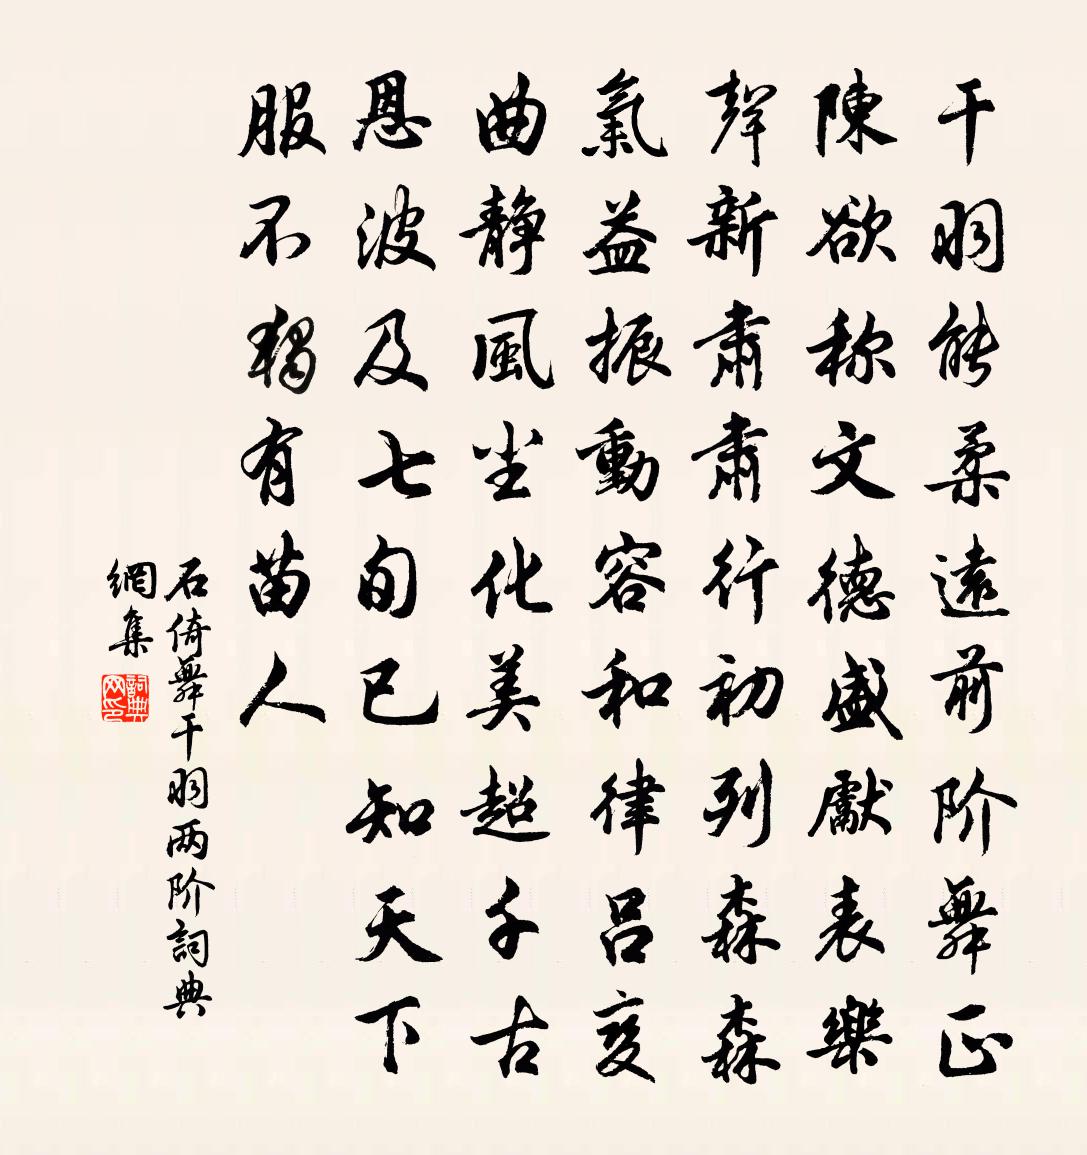 干羽能柔遠前阶舞正
陳欲称文德盛獻表樂
聲新肅肅行初列森森
氣益振動容和律呂变
曲静風尘化美超千古
恩波及七旬已知天下
服不独有苗人
石倚舞干羽两阶詞典
網集
詞典网印